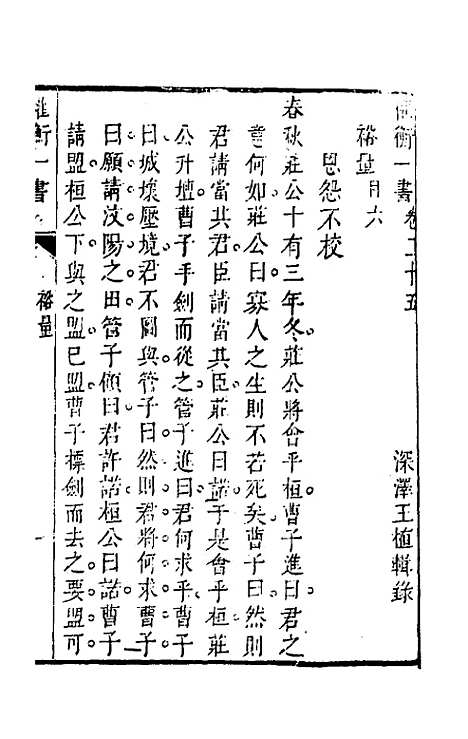 權衡一書卷二十五
深澤王植輯錄
裕量目六
恩怨不校
春秋莊公十有三年冬。莊公將會乎桓。曹子進曰君之
意何如莊公曰寡人之生則不若死矣曹子曰。然則
君請當其君臣請當其臣。莊公曰諾。于是會乎桓莊
公升壇曹子手劍而從之。管子進曰君何求乎曹子
曰城壞壓境君不圖與管子曰然則君將何求曹子
曰願請汶陽之田管子顧曰君許諾桓公曰諾曹子
請盟桓公下與之盟已盟曹子摽劍而去之。要盟可
權衡一書
裕量
一